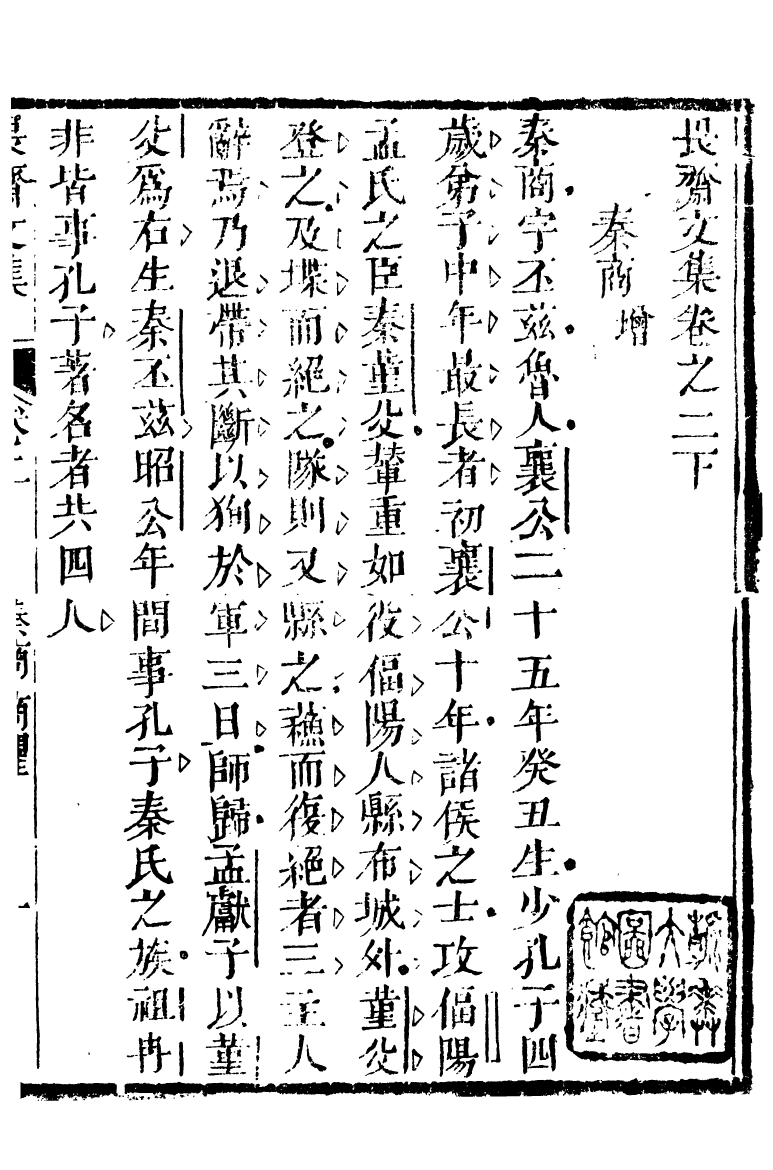 畏齋文集卷之二下
秦商 增
秦商字丕兹魯人襄公二十五年癸丑生少孔子四
歲弟子中年最長者初襄公十年諸侯之士攻偪陽
孟氏之臣秦菫父輦重如役偪陽人縣布城外菫父
登之及堞而絕之隊則又縣之蘓而復絕者三主人
辭焉乃退帶其斷以狥於軍三日師歸孟獻子以菫
父爲右生秦丕兹昭公年間事孔子秦氏之族祖冉
非皆事孔子著名者共四人
畏齋文集 卷之二 秦商 商瞿 一
大學圖書館